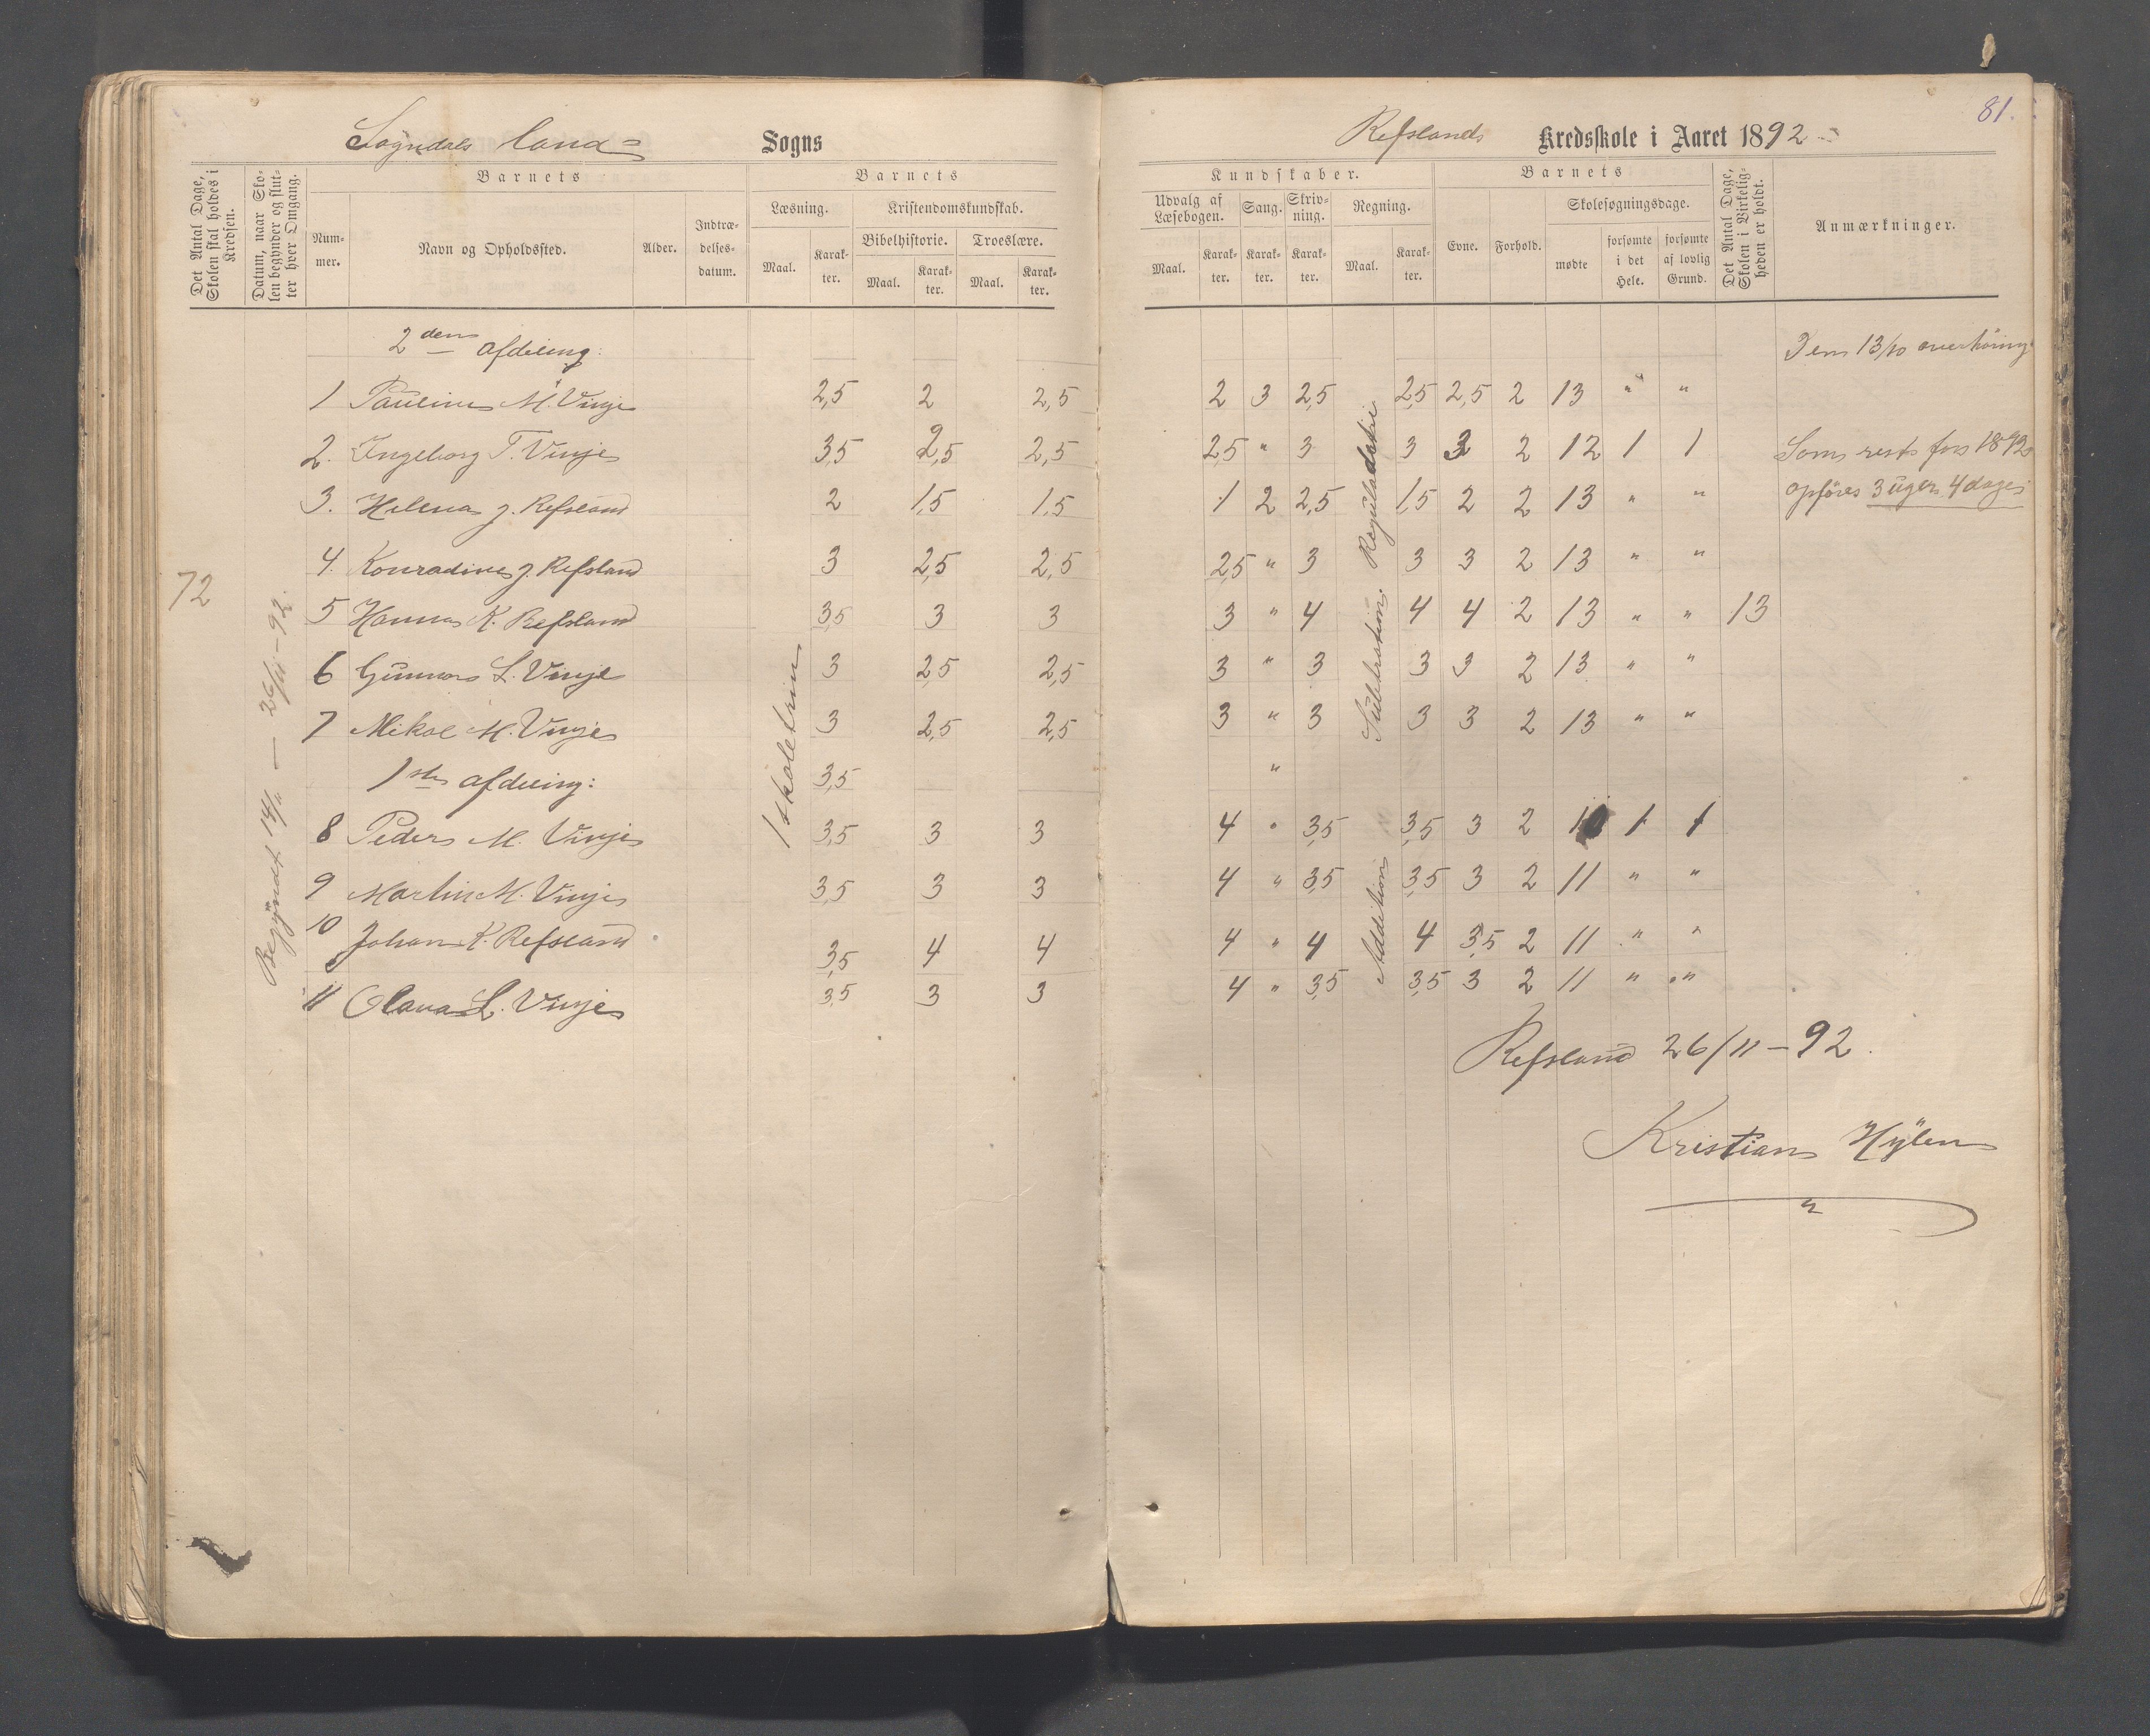 81.
Sogndals land= Sogns
Refslands Kredsskole i Aaret 1892
Det Antal Dage, Skolen skal holdes i Kredsen.
Datum, naar Skolen begynder og slutter hver Omgang.
Barnets
Nummer.
Navn og Opholdssted.
Alder.
Indtrædelsesdatum.
Barnets
Læsning.
Maal.
Karakter.
Kristendomskundskab.
Bibelhistorie.
Maal.
Karakter.
Troeslære.
Maal.
Karakter.
Kundskaber.
Udvalg af Læsebogen.
Maal.
Karakter.
Sang.
Karakter.
Skrivning.
Karakter.
Regning.
Maal.
Karakter.
Barnets
Evne.
Forhold.
Skolesøgningsdage.
mødte
forsømte i det Hele.
forsømte af lovlig Grund.
Det Antal Dage, Skolen i Virkeligheden er holdt.
Anmærkninger.
2den afdeling:
Den 13/10 overhøring
1 Pauline M. Vinje 2,5 2 2,5 2 3 2,5 2,5 2,5 2 13 " "
2. Ingeborg T. Vinje 3,5 2,5 2,5 2,5 " 3 3 3 2 12 1 1 Som rest for 1892
3. Helena J. Refsland 2 1,5 1,5 1 2 2,5 1,5 2 2 13 " " opføres 3 uger 4 dage
4. Konradine J. Refsland 3 2,5 2,5 2,5 " 3 3 3 2 13 " "
72
5 Hanna K. Refsland 3,5 3 3 3 " 4 4 4 2 13 " " 13
6 Gunnar L. Vinje 3 2,5 2,5 3 " 3 3 3 2 13 " "
7 Mikal M. Vinje 3 2,5 2,5 3 " 3 3 3 2 13 " "
1ste afdeling: 3,5 "
8 Peder M. Vinje 3,5 3 3 4 " 3,5 3,5 3 2 10 1 1
9 Martin M. Vinje 3,5 3 3 4 " 3,5 3,5 3 2 11 " "
10 Johan K. Refsland 3,5 4 4 4 " 4 4 3,5 2 11 " "
11 Olava L. Vinje 3,5 3 3 4 " 3,5 3,5 3 2 11 " "
Begyndt 14/11 — 26/11 - 92.
1 skoletrin
Subtraktion. Reguladetri
Addition
Refsland 26/11 - 92.
Kristian Hylen